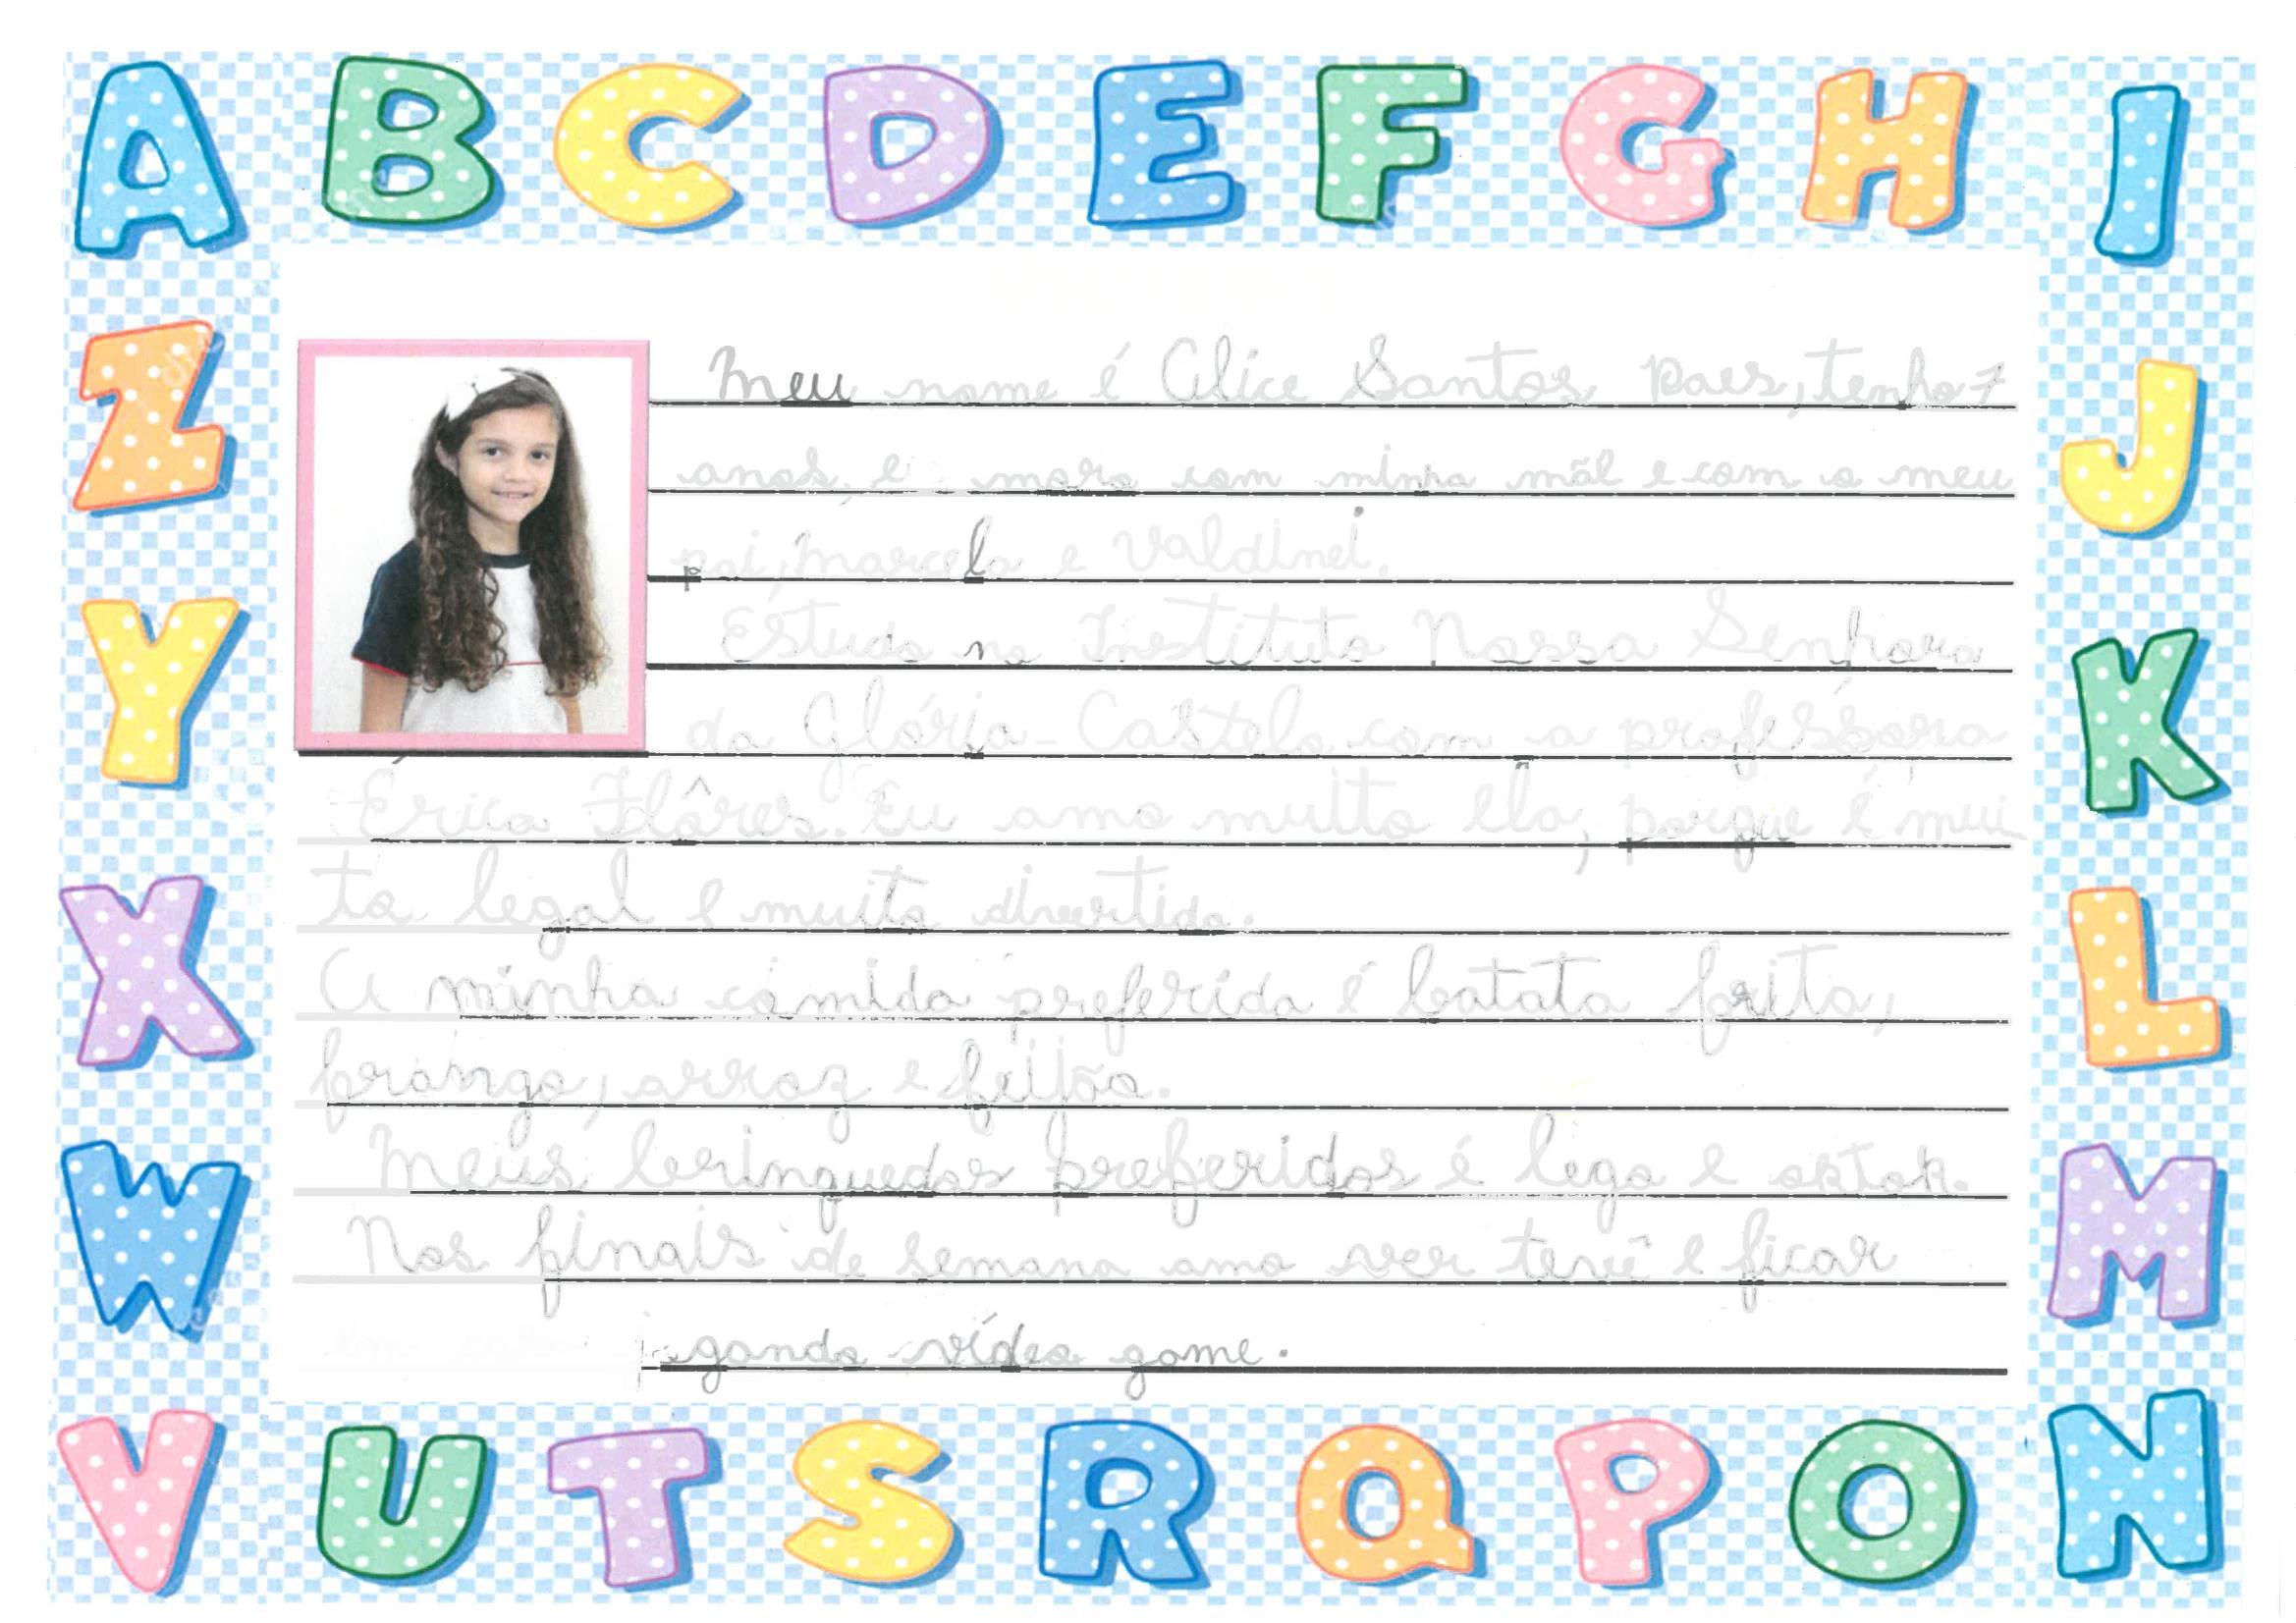 A B C D E F G H I
MEU PERFIL
Meu nome é Alice Santos Paes, tenho 7
anos, e moro com minha mãe e com o meu
pai, Marcela e Valdinei.
Estudo no Instituto Nossa Senhora
da Glória - Castelo com a professora
Erica Flôres. Eu amo muito ela, porque é mui
to legal e muito divertida.
A minha comida preferida é batata frita,
frango, arroz e feijão.
Meus brinquedos preferidos é lego e
Nos finais de semana amo ver tevê e ficar
em casa jogando vídeo game.
Z J
Y K
X L
W M
V U T S R Q P O N